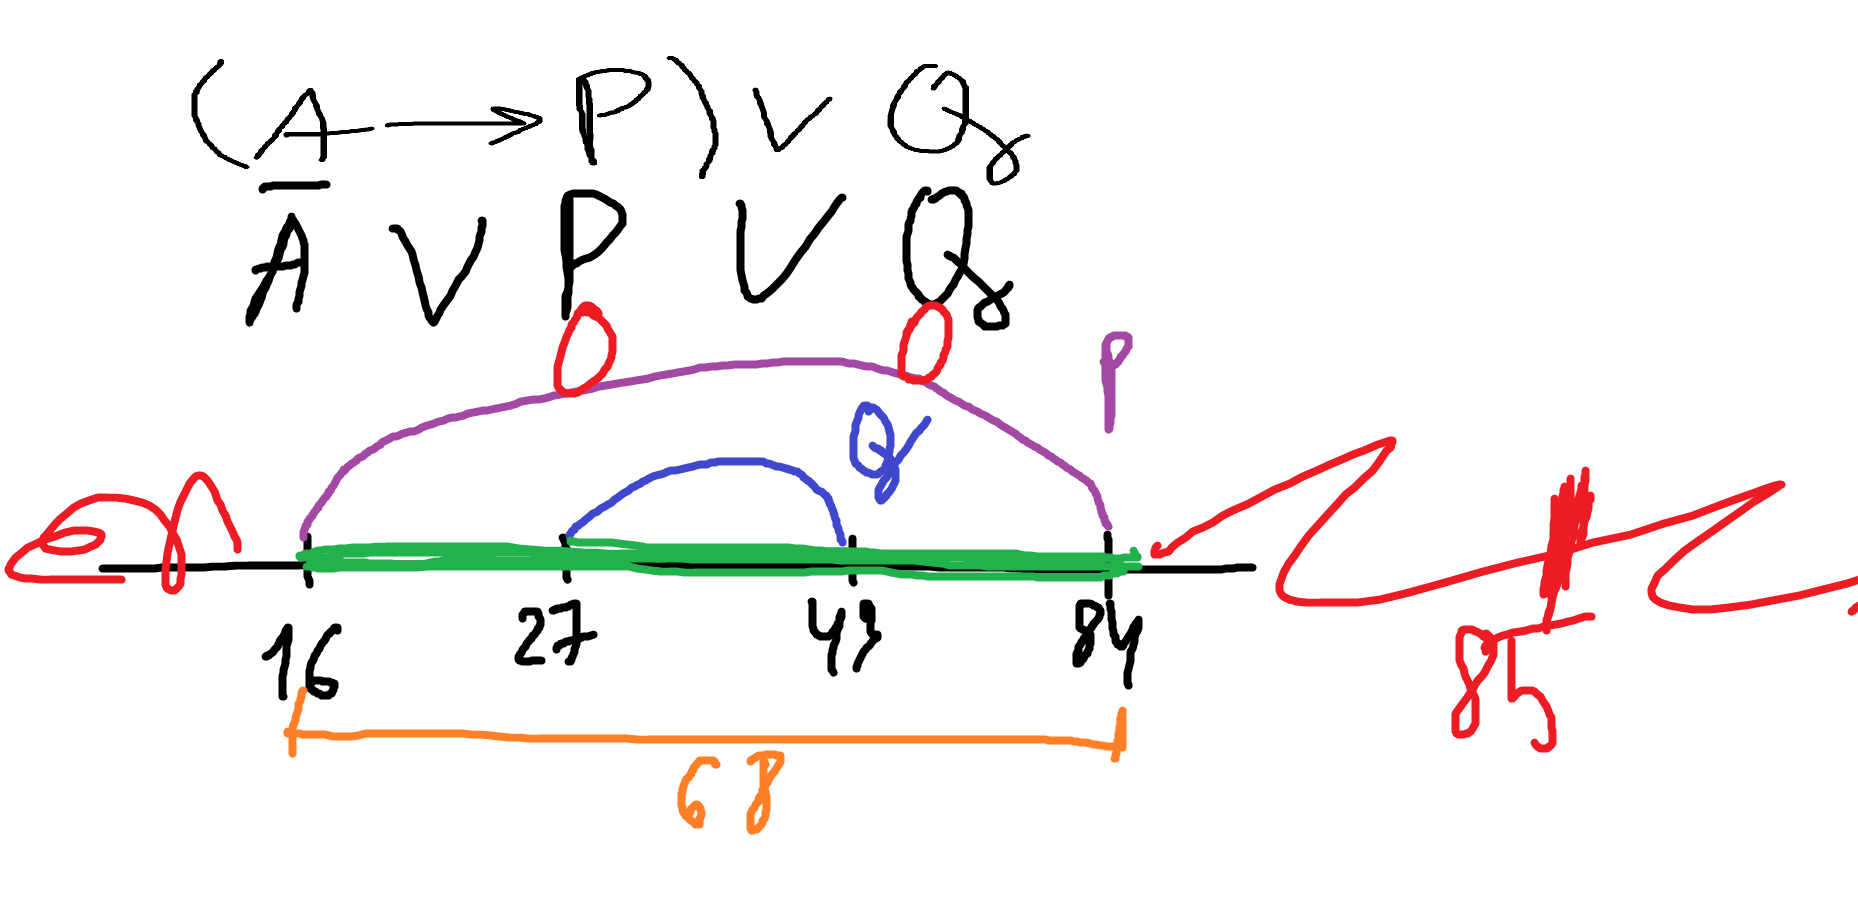 (A → P) ∨ Q
A̅ ∨ P ∨ Q
0 0
P
Q
16 27 49 84
85
68